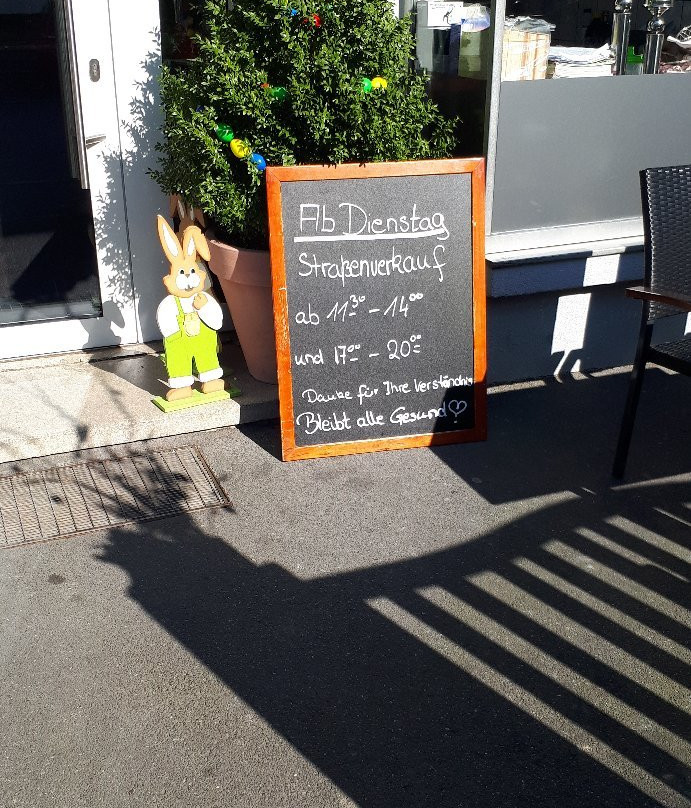 Ab Dienstag
Straßenverkauf
ab 11³⁰ - 14⁰⁰
und 17⁰⁰ - 20⁰⁰
Danke für Ihre Verständnis
Bleibt alle Gesund